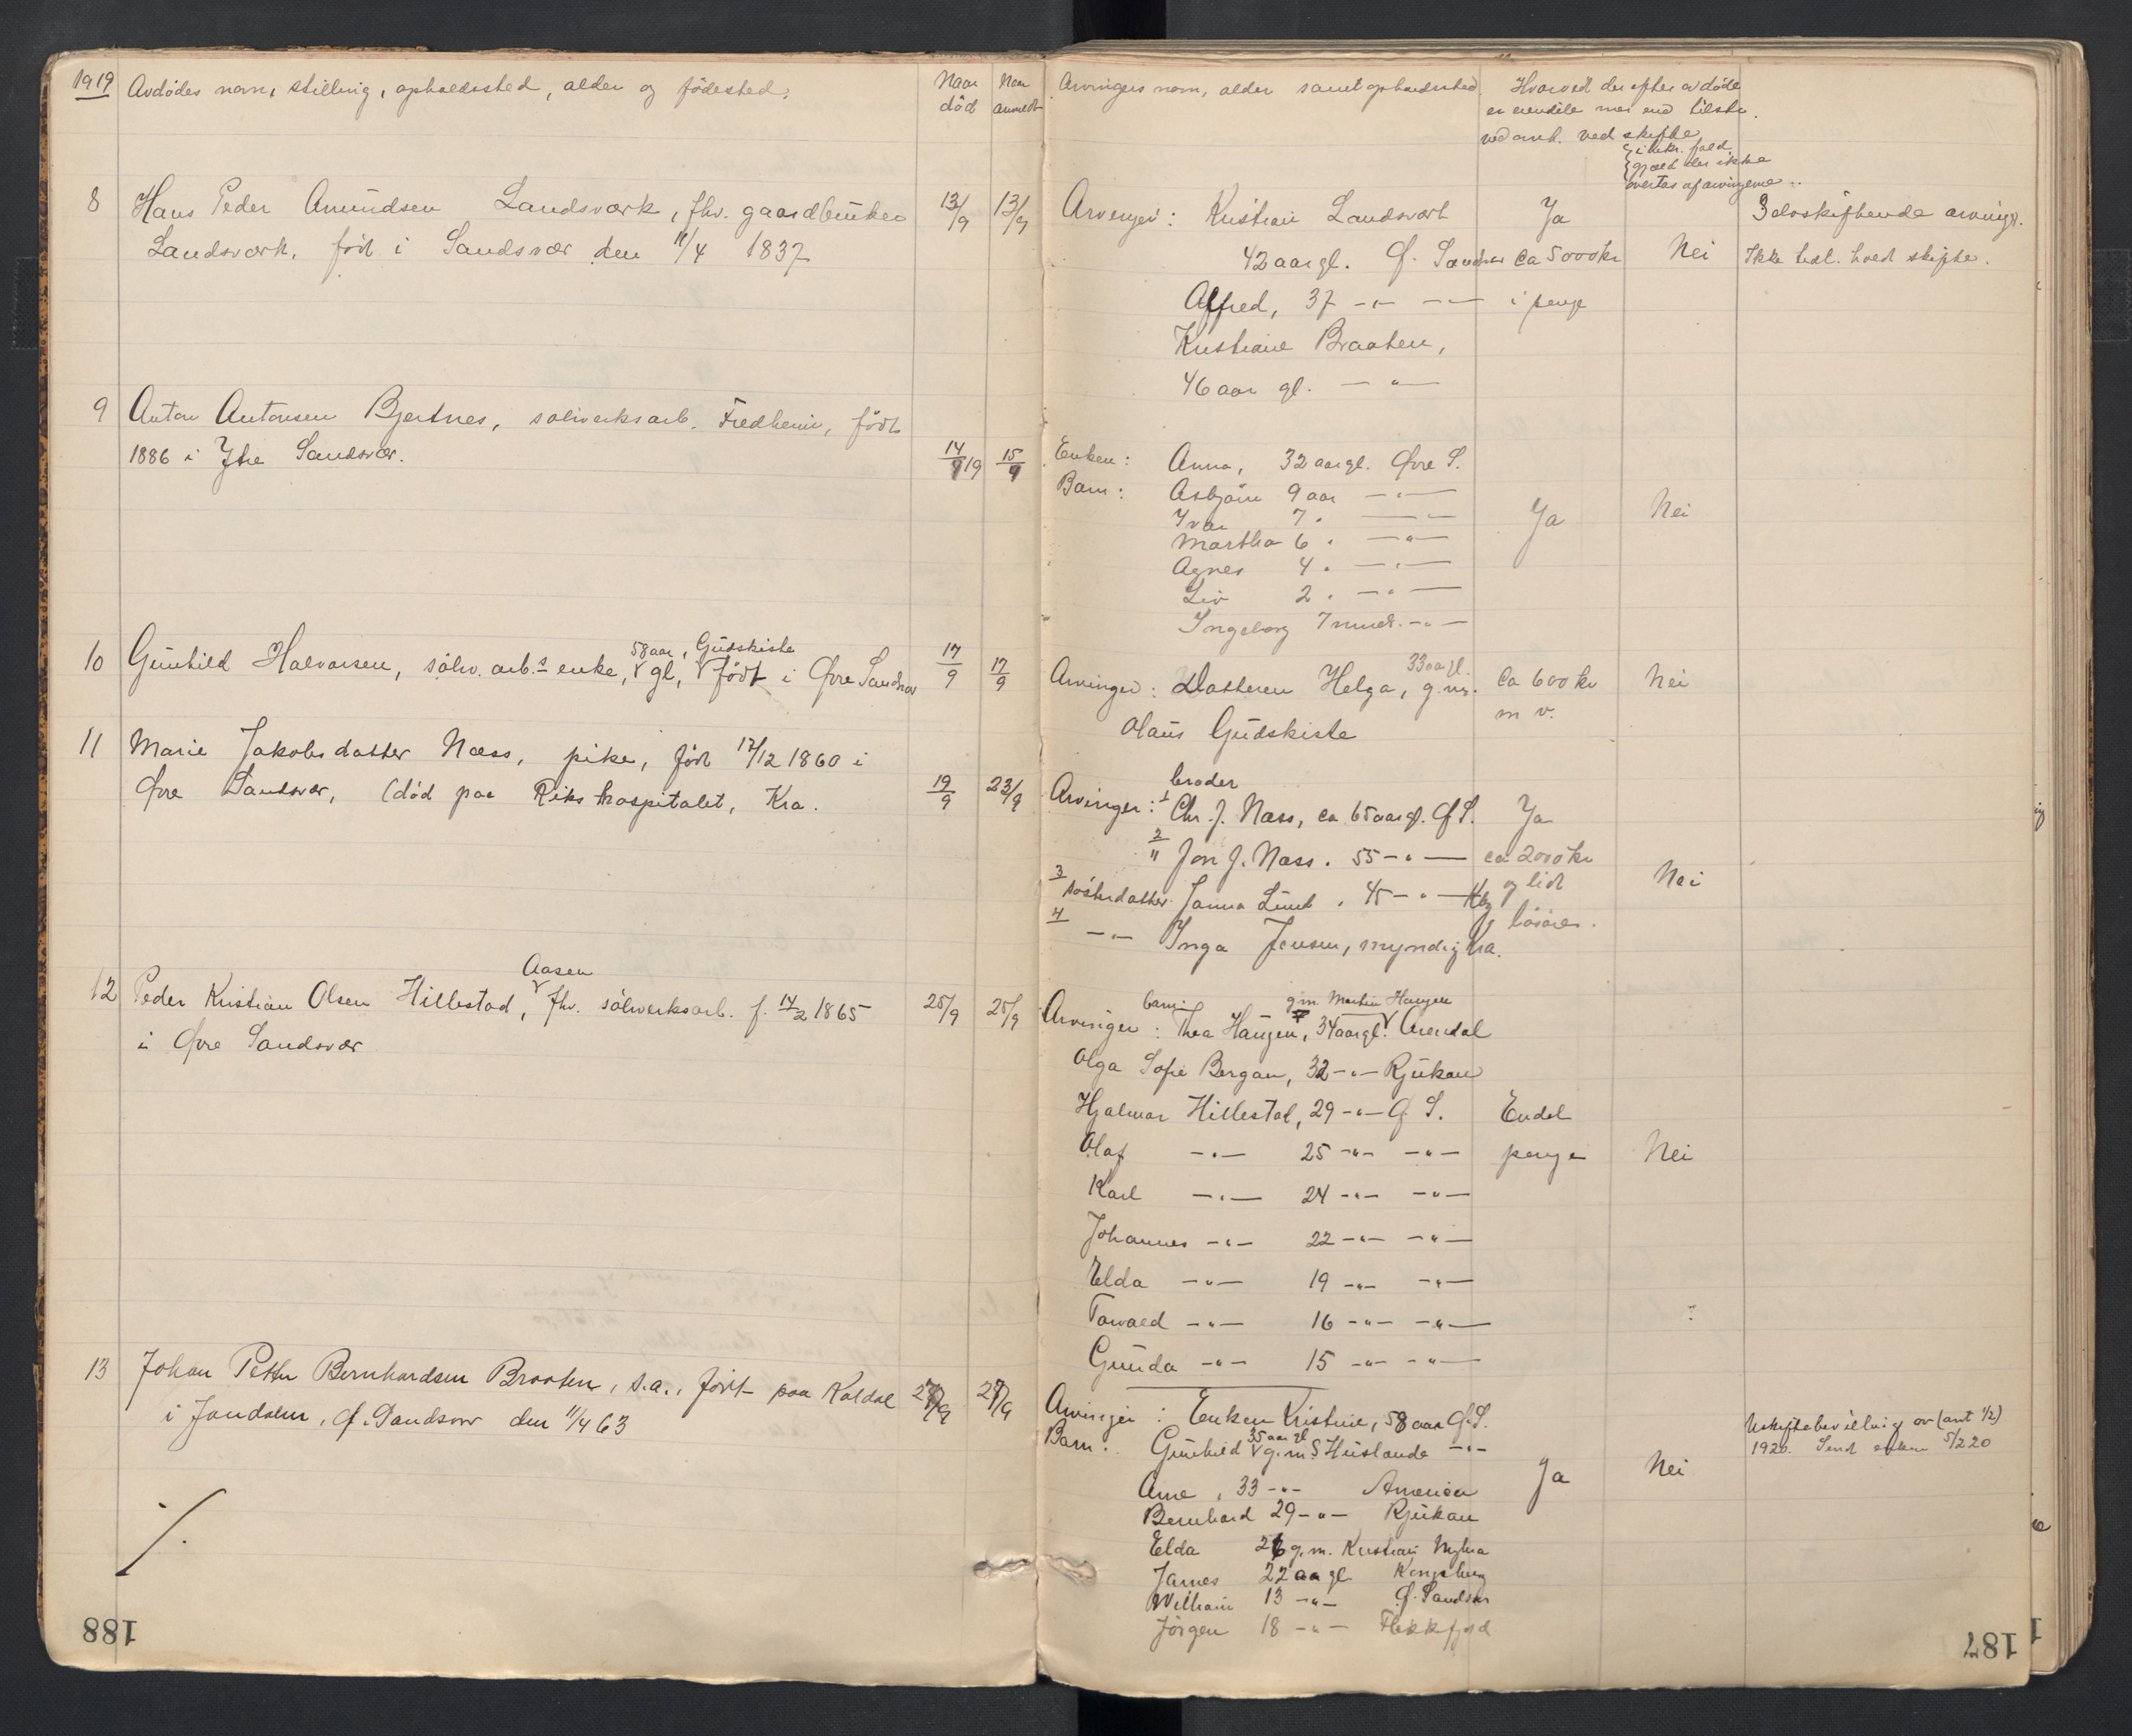 1919 Avdödes navn, stilling, opholdssted, alder og födested. Naar död Naar anmeldt Arvingers navn, alder samt opholdssted. Hvorvidt der efter avdöde
er eiendele mer end tilstr.
ved skifte
gjæld der ikke
overtas af arvingerne
8 Hans Peder Amundsen Landsværk, fhv. gaardbruker 13/9 13/9 Arvinger: Kristian Landsværk Ja 3 selvskiftende arvinger.
Landsværk, född i Sandsvær den 11/4 1837 42 aar gl. Ø. Sandsvær Ca 5000 kr Nei Ikke tedl. hved skifte.
Alfred, 37 -"- -"- i penge
Kristiane Braaten,
46 aar gl. -"-
9 Anton Antonsen Bjertnes, sölverksarb. Fredheim, född
1886 i Ytre Sandsvær. 14/9 19 15/9 Enken: Anna, 32 aar gl. Øvre S.
Barn: Asbjörn 9 aar -"-
Ivar 7 " -"- Ja Nei
Martha 6 " -"-
Agnes 4 " -"-
Liv 2 " -"-
Ingeborg 7 mndr. -"-
10 Gunhild Halvorsen, sölv. arb.s enke, 58 aar gl, Gudskiste född i Øvre Sandsvær 17/9 17/9 Arvinger: Datteren Helga, 33 aar gl. g.m. Ca 600 kr Nei
Olaus Gudskiste m v.
11 Marie Jakobsdatter Næss, pike, född 17/12 1860 i
Øvre Sandsvær, (död paa Rikshospitalet, Kra. 19/9 23/9 Arvinger: 1 broder Chr. J. Næss, ca 65 aar gl. Ø S. Ja
2 " Jon J. Næss. 55 -"- ca 2000 kr
3 sösterdatter Janna Lund. 45 -"- Kbg og lidt Nei
4 -"- Inga Jensen, myndig Kra. lösöre.
12 Peder Kristian Olsen Hillestad, Aasen fhv. sölverksarb. f. 14/2 1865 25/9 25/9 Arvinger: barn: Thea Haugen, 34 aar gl. g.m. Martin Haugen Arendal
i Øvre Sandsvær
Olga Sofie Bergan, 32 -"- Rjukan
Hjalmar Hillestad, 29 -"- Ø. S. Endel
Olaf -"- 25 -"- -"- penge Nei
Karl -"- 24 -"- -"-
Johannes -"- 22 -"- -"-
Elda -"- 19 -"- -"-
Torvald -"- 16 -"- -"-
Gunda -"- 15 -"- -"-
13 Johan Petter Bernhardsen Braaten, s.a., född paa Koldal 27/9 27/9 Arvinger: Enken Kristine, 58 aar Ø.S.
i Jondalen, Ø. Sandsvær den 11/4 63 Uskiftebevilling av (ant 1/2)
1920. Send enken 5/2 20
Barn: Gunhild 35 aar gl g. m. S Huslande -"-
Arne, 33 -"- Amerika Ja Nei
Bernhard 29 -"- Rjukan
Elda 26 g. m. Kristian Myhra
James 22 aar gl. Kongsberg
William 13 -"- Ø. Sandsvær
Jörgen 18 -"- Flekkefjord
./.
188
187